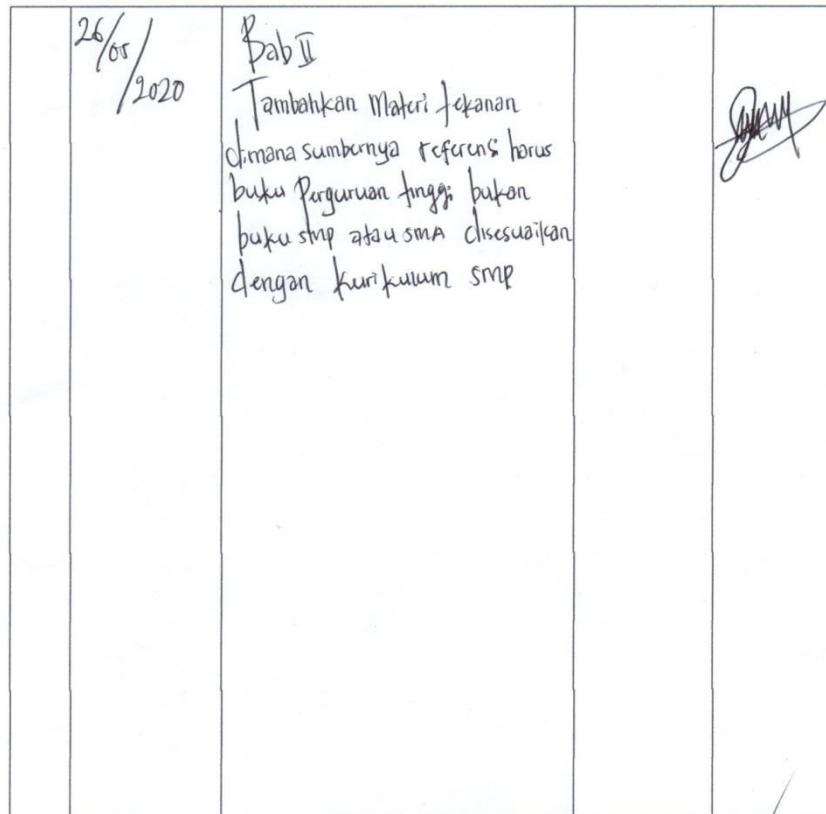 26/05/2020
Bab II
Tambahkan Materi tekanan
dimana sumbernya referensi harus
buku Perguruan tinggi bukan
buku smp atau SMA disesuaikan
dengan kurikulum smp